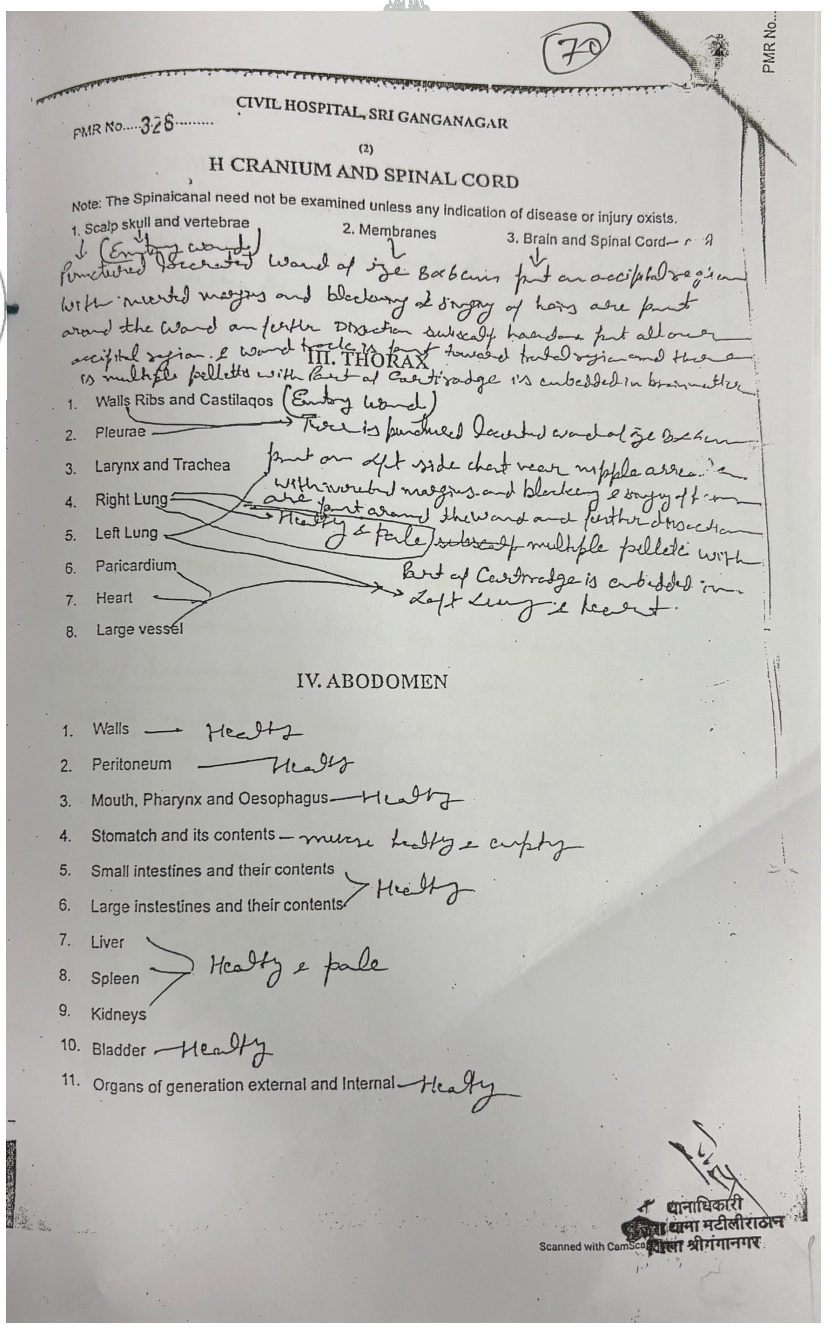 70
PMR No...
CIVIL HOSPITAL, SRI GANGANAGAR
PMR No.....328.........
(2)
H CRANIUM AND SPINAL CORD
Note: The Spinaicanal need not be examined unless any indication of disease or injury oxists.
1. Scalp skull and vertebrae 2. Membranes 3. Brain and Spinal Cord
(Entry wound)
Punctured lacerated wound of size 8cmx6cm on occipital region
with inverted margins and blackening & singing of hairs are
around the wound on further Disection all over
occipital region. & wound track is toward region and there
III. THORAX
is multiple pelletts with Part of Cartiradge is embedded in brain matter
1. Walls Ribs and Castilaqos (Entry wound)
2. Pleurae There is punctured lacerated wound of size
3. Larynx and Trachea on left side chest near nipple area
with inverted margins and blackening & singing of
4. Right Lung are around the wound and further disection
5. Left Lung Healty & pale multiple pellets with
6. Paricardium Part of Cartiradge is embedded in
7. Heart Left Lung & heart.
8. Large vessel
IV. ABODOMEN
1. Walls — Healty
2. Peritoneum — Healty
3. Mouth, Pharynx and Oesophagus — Healty
4. Stomatch and its contents — healty & empty
5. Small intestines and their contents
Healty
6. Large instestines and their contents
7. Liver
8. Spleen Healty & pale
9. Kidneys
10. Bladder — Healty
11. Organs of generation external and Internal — Healty
थानाधिकारी
थाना मटीलीराठान
Scanned with CamSca जिला श्रीगंगानगर